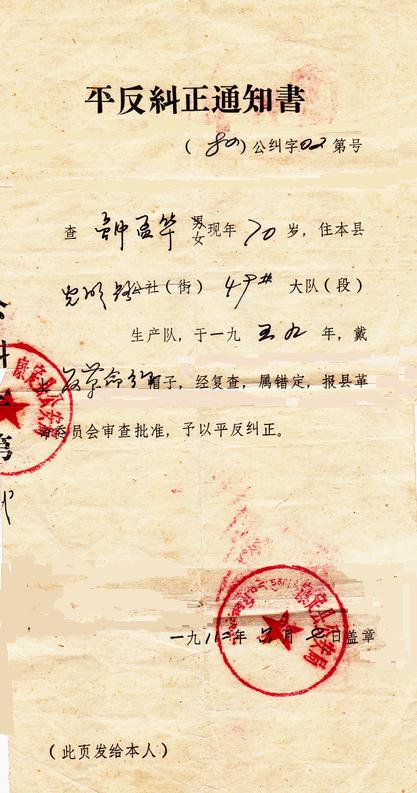 平反糾正通知書
(80)公纠字02第号
查 男女现年70岁，住本县
光明路公社（街）49# 大队（段）
生产队，于一九五九年，戴
反革命分子帽子，经复查，属错定，报县革
委员会审查批准，予以平反纠正。
康定县公安局
一九八二年 月 日盖章
康定县公安局
（此页发给本人）